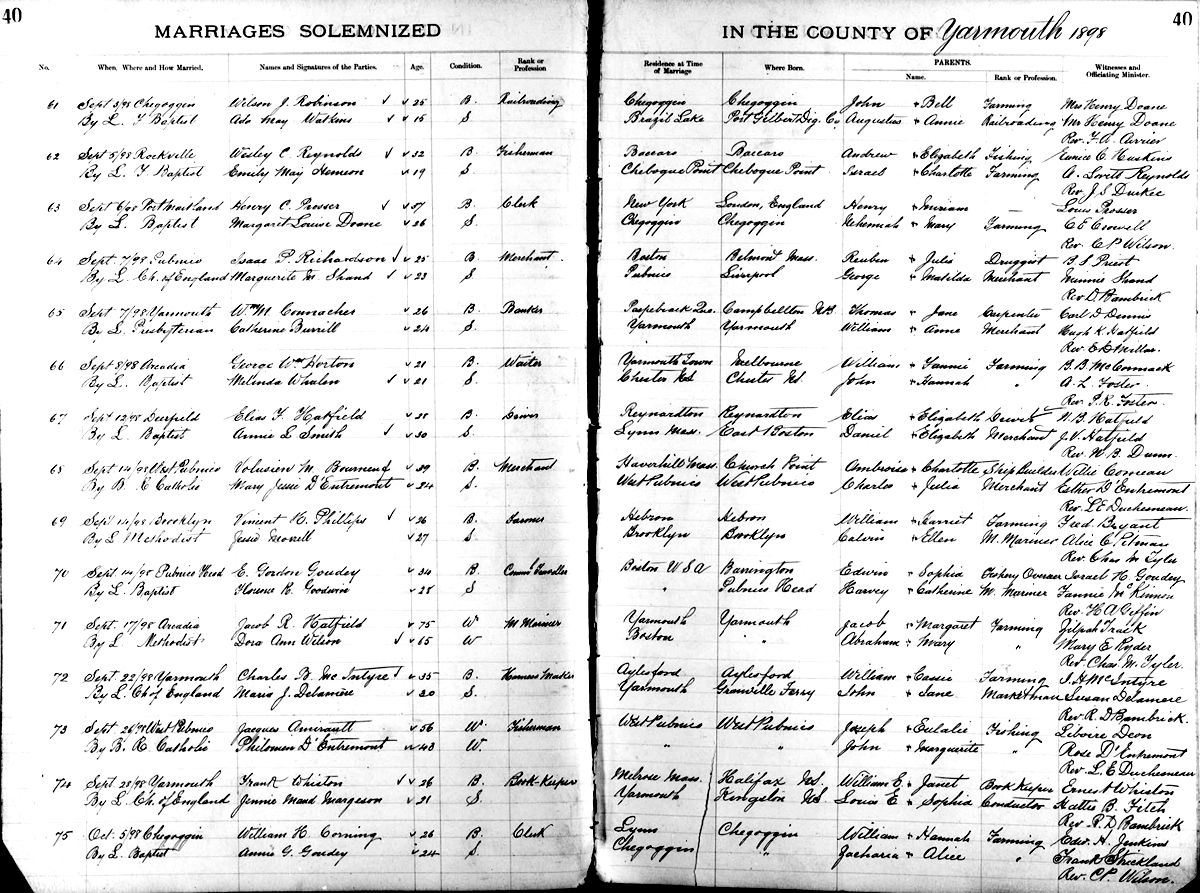 40
MARRIAGES SOLEMNIZED
IN THE COUNTY OF Yarmouth 1898
40
No. When, Where and How Married. Names and Signatures of the Parties. Age. Condition. Rank or Profession Residence at Time of Marriage Where Born. PARENTS. Name. Rank or Profession. Witnesses and Officiating Minister.
61 Sept 3/98 Chegoggin Wilson J. Robinson 25 B. Railroading Chegoggin Chegoggin John " Bell Farming Mrs Henry Doane
By L. F Baptist Ada May Watkins S Brazil Lake Port Gilbert Dig. Co. Augustus " Annie Railroading Mr Henry Doane
Rev. F. A. Currier
62 Sept 5/98 Rockville Wesley C. Reynolds 32 B. Fisherman Baccaro Baccaro Andrew " Elizabeth Fishing Eunice C. Huskins
By L. F. Baptist Emily May Hemeon 19 S Chebogue Point Chebogue Point. Israel " Charlotte Farming A. Lovitt Reynolds
Rev J. S Durkee
63 Sept 6/98 Port Maitland Henry C. Prosser 57 B. Clerk New York London, England Henry " Miriam — Louis Prosser
By L. Baptist Margaret Louise Doane 26 S. Chegoggin Chegoggin Nehemiah " Mary Farming C E Crowell
Rev. C. P. Wilson.
64 Sept. 7/98 Pubnico Isaac P. Richardson 25 B. Merchant Boston Belmont Mass. Reuben " Julia Druggist B. S Priest
By L. Ch. of England Marguerite M Shand 23 S. Pubnico Liverpool George " Matilda Merchant Minnie Shand
Rev D. Bambrick
65 Sept 7/98 Yarmouth Wm M Connacher 26 B. Banker Paspebiack Que. Campbellton NB. Thomas " Jane Carpenter Carl D Dennis
By L. Presbyterian Catherine Burrill 24 S. Yarmouth Yarmouth William " Anna Merchant Hugh K. Hatfield
Rev E D Millar.
66 Sept 8/98 Arcadia George Wm Horton 21 B. Waiter Yarmouth Town Melbourne William " Fannie Farming B. B. McCormack
By L. Baptist Melinda Whalen 21 S. Chester NS Chester NS. John " Hannah " A. L. Foster
Rev. P. R. Foster
67 Sept 12/98 Deerfield Elias F. Hatfield B. Reynardton Reynardton Elias " Elizabeth N. B. Hatfield
By L. Baptist Annie L Smith 30 S. Lynn Mass. East Boston Daniel " Elizabeth Merchant J. V. Hatfield
Rev. W B. Dunn.
68 Sept 14/98 West Pubnico Volusien M. Bourneuf 39 B. Merchant Haverhill Mass. Church Point Ambroise " Charlotte Ship builder Willie Comeau
By B. R Catholic Mary Jessie D'Entremont 24 S. West Pubnico West Pubnico Charles " Julia Merchant Esther D'Entremont
Rev. L E Duchesneau.
69 Sept 14/98 Brooklyn Vincent H. Phillips 26 B. Farmer Hebron Hebron William " Harriet Farming Fred Bryant
By L Methodist Jessie Morrell 27 S. Brooklyn Brooklyn Calvin " Ellen M. Mariner Alice E. Pitman
Rev. Chas M Tyler
70 Sept 14/98 Pubnico Head E. Gordon Goudey 34 B. Comml Traveller Boston U S A Barrington Edwin " Sophia Fishery Overseer Israel H. Goudey
By L. Baptist Florence K. Goodwin 28 S " Pubnico Head Harvey " Catherine M. Mariner Fannie McKinnon
Rev. H A Giffin
71 Sept. 17/98 Arcadia Jacob R. Hatfield 75 W. M Mariner Yarmouth Yarmouth Jacob " Margaret Farming Zilpah Trask
By L Methodist Dora Ann Wilson 65 W Boston " Abraham " Mary " Mary E. Ryder
Rev. Chas M. Tyler.
72 Sept. 22/98 Yarmouth Charles B. McIntyre 35 B. Harness Maker Aylesford Aylesford William " Cassie Farming S. H. McIntyre
By L. Ch of England Maria J. Delamere 30 S. Yarmouth Granville Ferry John " Jane Marketman Susan Delamere
Rev. R. D. Bambrick.
73 Sept 26/98 West Pubnico Jacques Amirault 56 W. Fisherman West Pubnico West Pubnico Joseph " Eulalie Fishing Liboire Deon
By B. R. Catholic Philomen D'Entremont 43 W. " " John " Marguerite " Rose D'Entremont
Rev. L. E Duchesneau
74 Sept 28/98 Yarmouth Frank Whiston 26 B. Book-Keeper Melrose Mass. Halifax NS. William E. " Janet Book Keeper Ernest Whiston
By L. Ch. of England Jennie Maud Margeson 21 S. Yarmouth Kingston NS Louis E. " Sophia Conductor Hattie B. Fitch
Rev. R. D Bambrick
75 Oct. 5/98 Chegoggin William H. Corning 26 B. Clerk Lynn Chegoggin William " Hannah Farming Edw. H. Jenkins
By L. Baptist Annie G. Goudey 24 S. Chegoggin " Zacharia " Alice " Frank Strickland
Rev. C. P. Wilson.